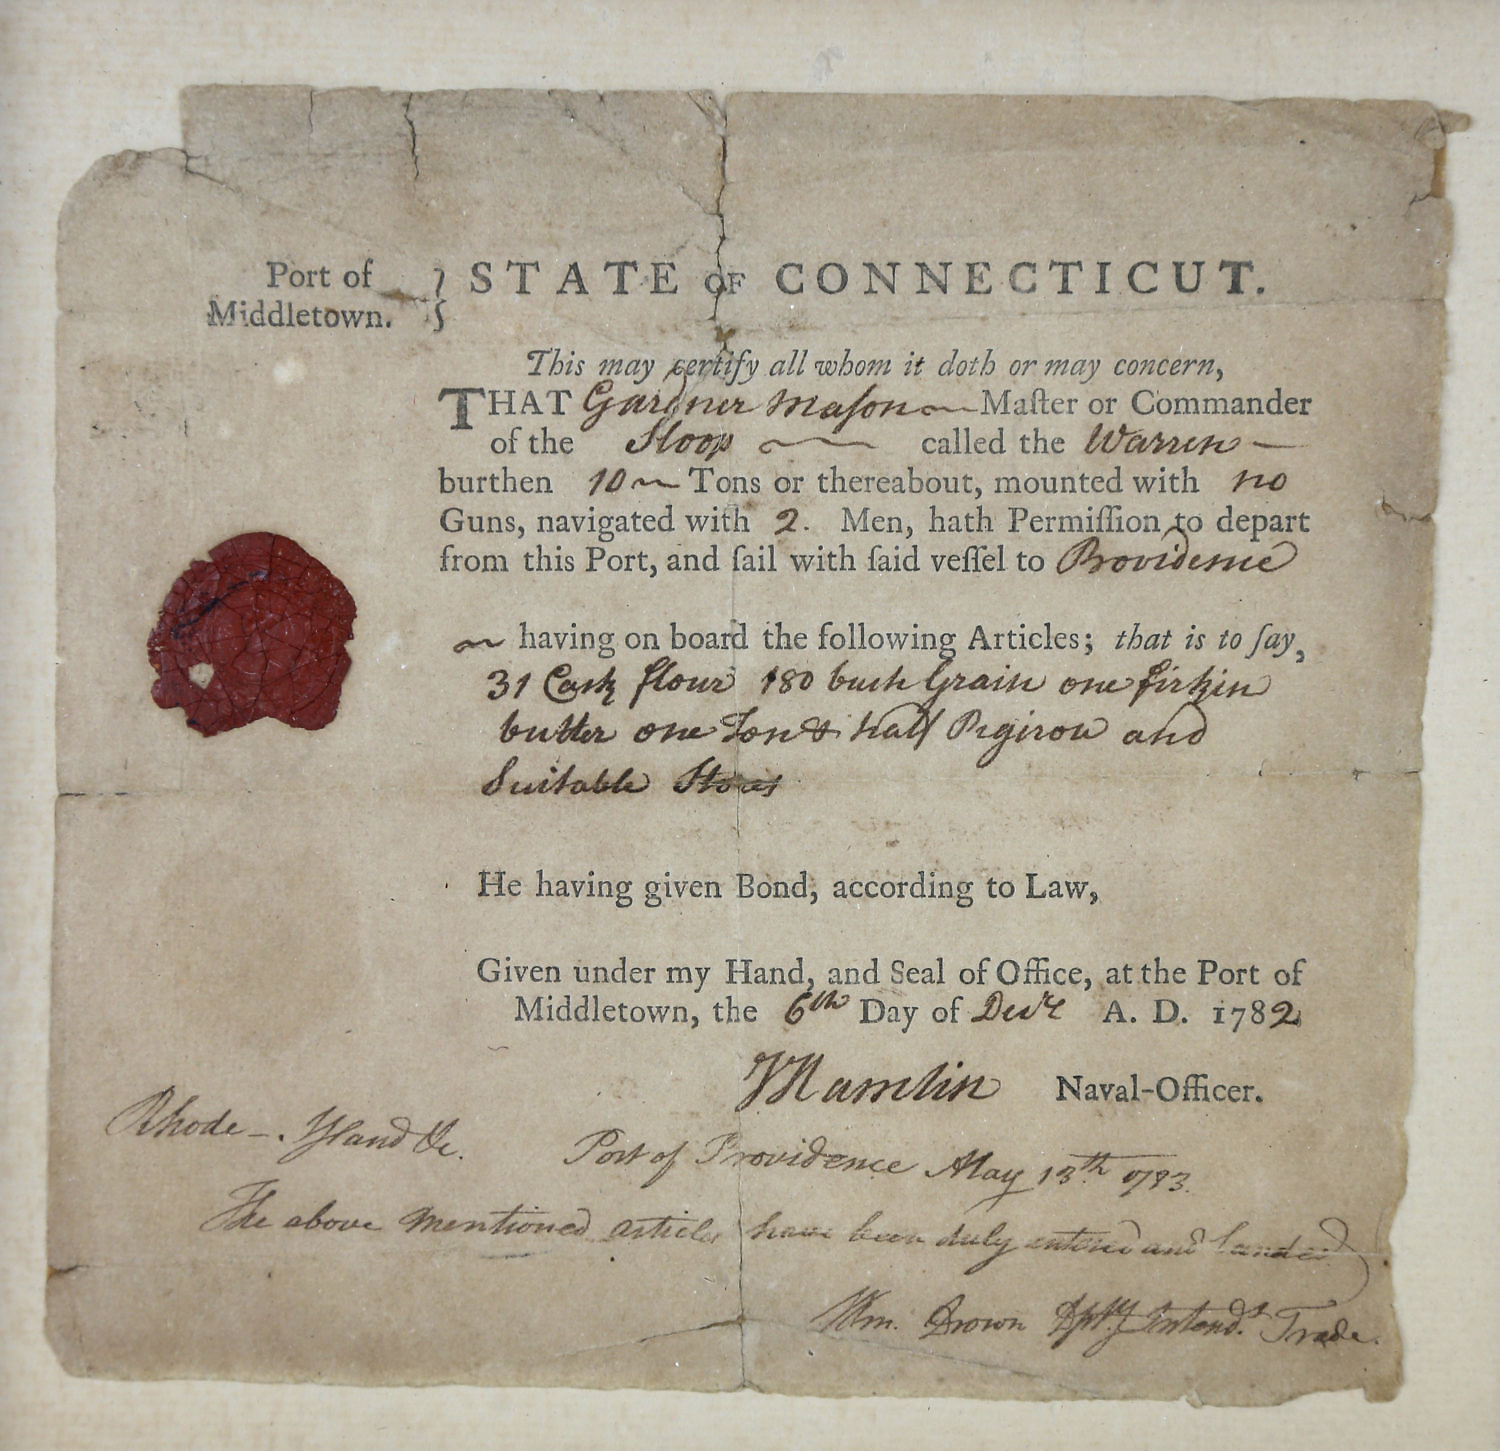 Port of
Middletown.
STATE OF CONNECTICUT.
This may certify all whom it doth or may concern,
THAT Gardner Maſon Maſter or Commander
of the Sloop called the Warren
burthen 10 Tons or thereabout, mounted with no
Guns, navigated with 2. Men, hath Permiſſion to depart
from this Port, and ſail with ſaid veſſel to Providence
having on board the following Articles; that is to ſay,
31 Cask flour 180 bush Grain one firkin
butter one Ton & half Pigiron and
Suitable Stores
He having given Bond, according to Law,
Given under my Hand, and Seal of Office, at the Port of
Middletown, the 6th Day of Decr A. D. 1782
Hamlin Naval-Officer.
Rhode-Island &c.
Port of Providence May 13th 1783.
The above mentioned articles have been duly entered and landed
Wm. Brown Dpty Intendt Trade.